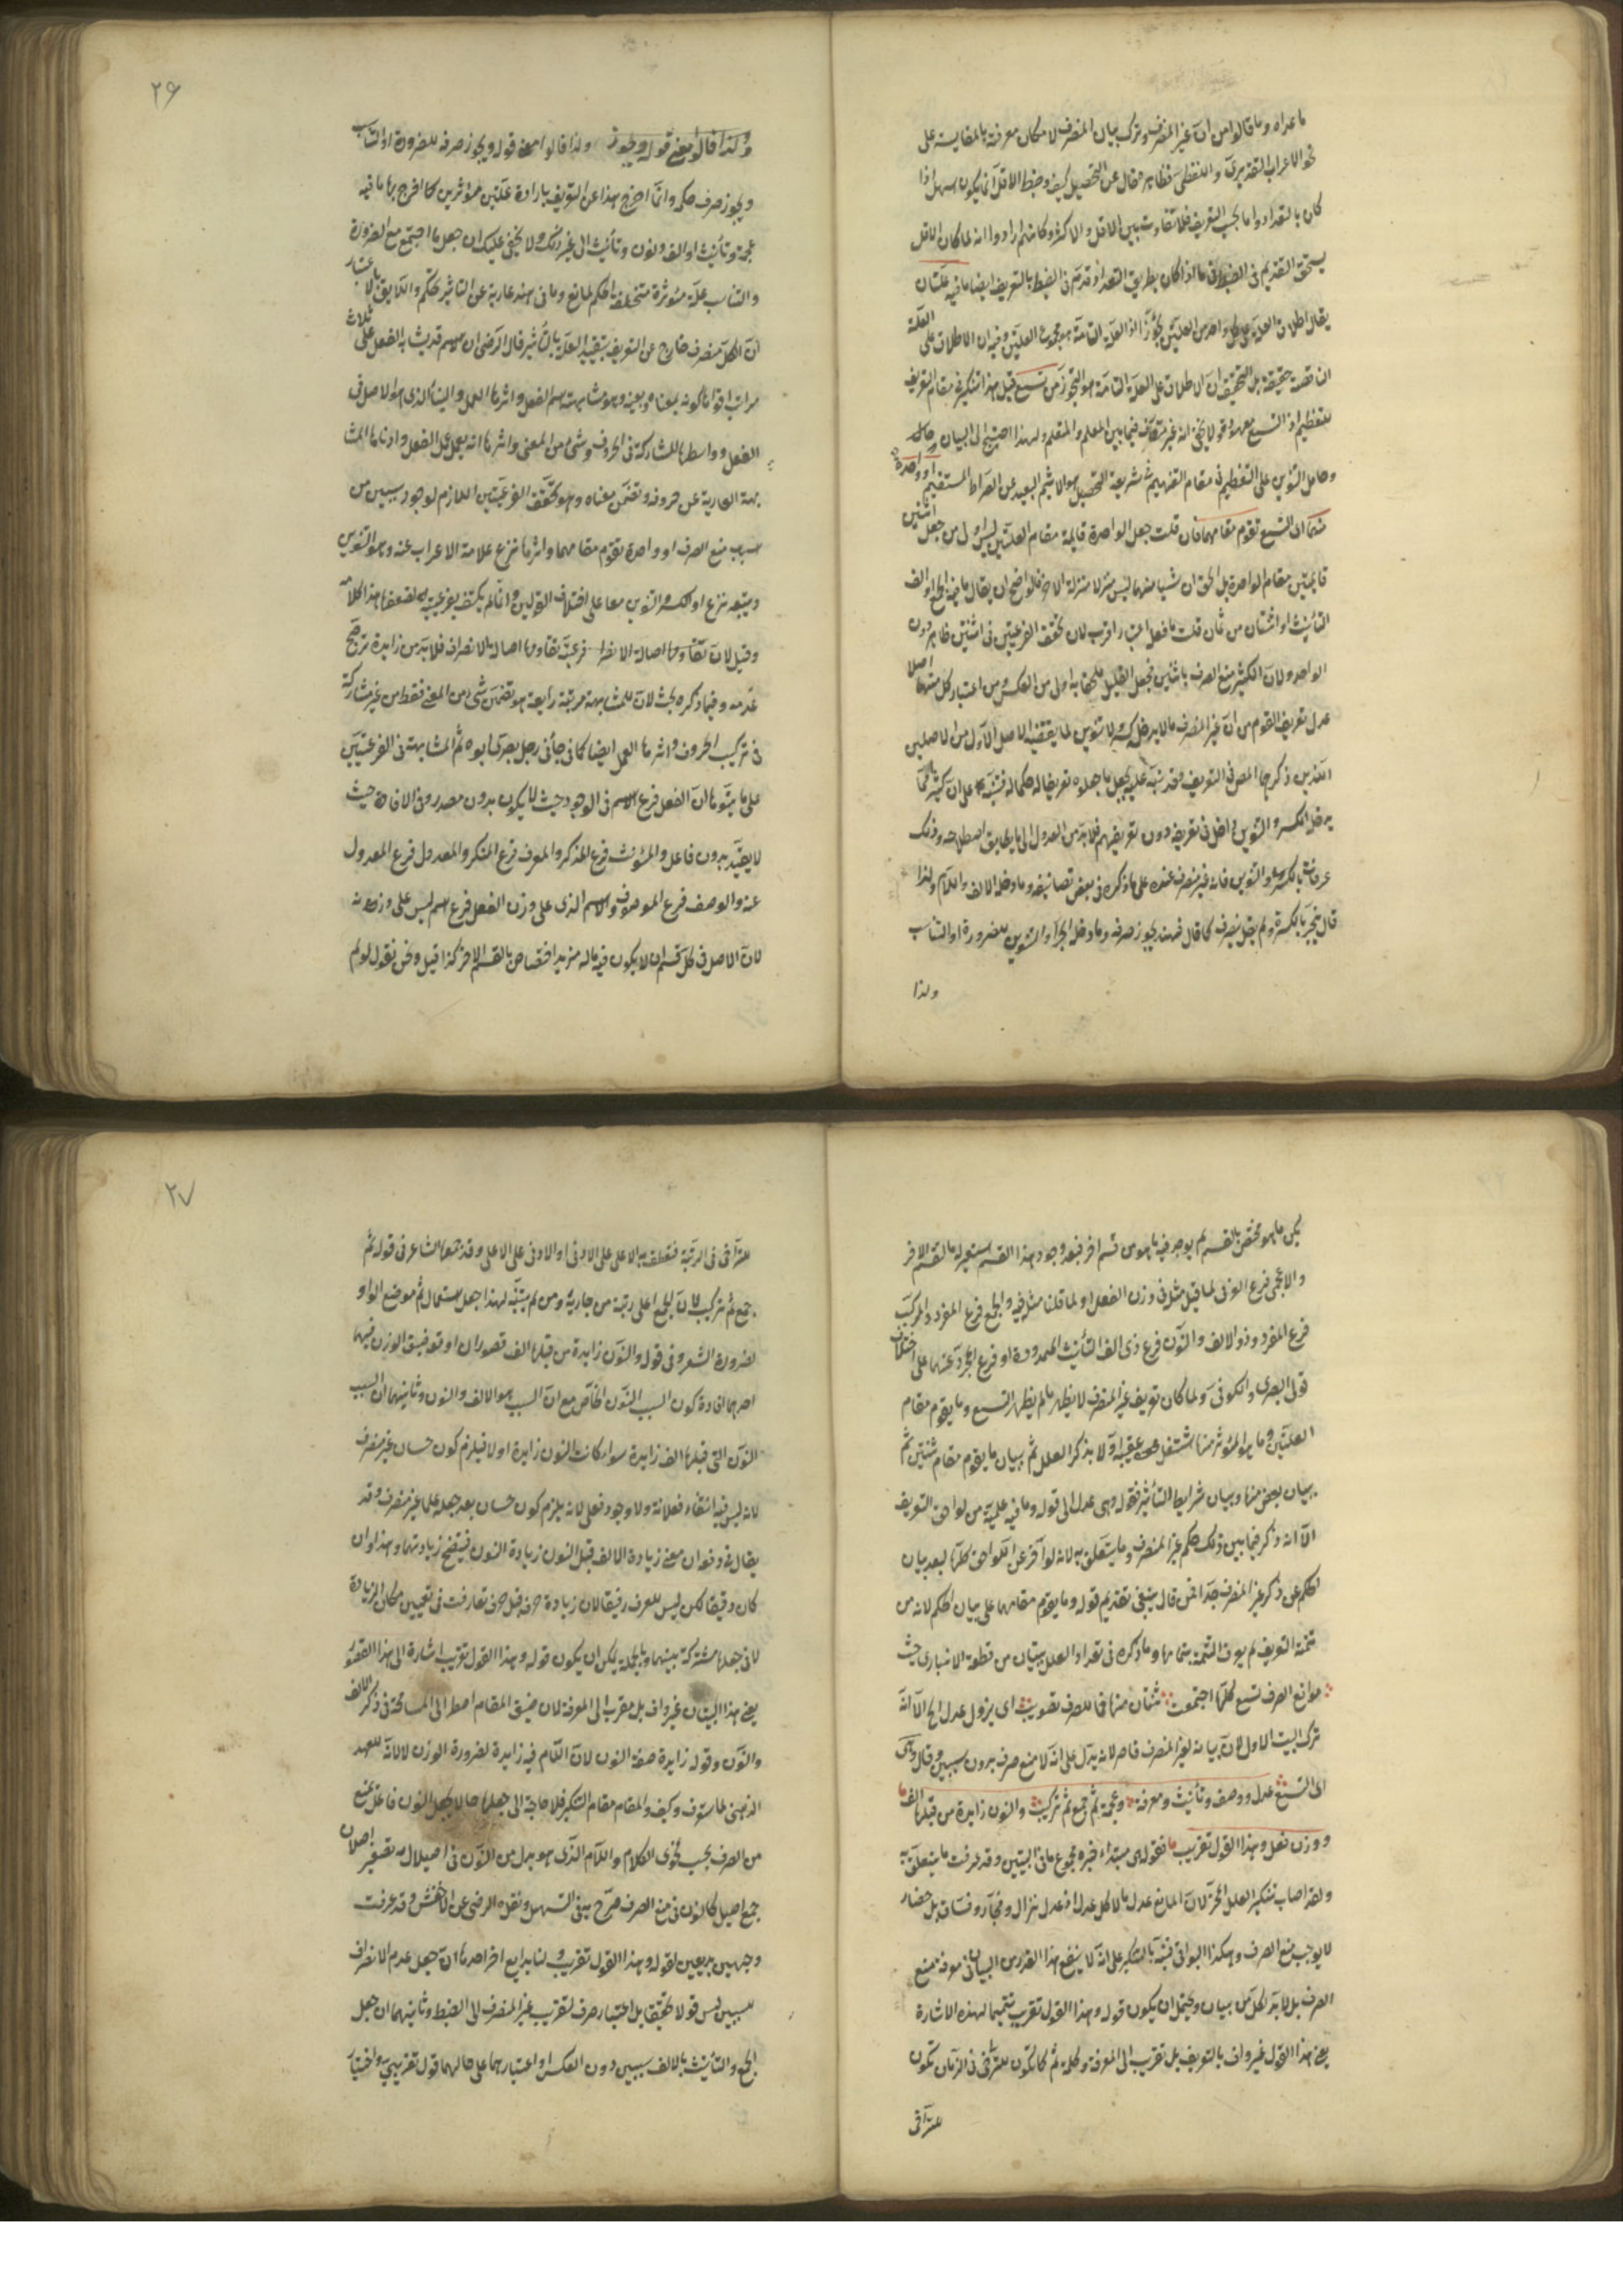 ما عداه وما قالوا من ان غير المنصرف وترك بيان المنصرف لامكان معرفته بالمقايسة على
نحو الاعراب التقديري واللفظي فظاهر حال عن التحصيل كيف وضبط الاقل انما يكون اسهل اذا
كان بالتعداد واما بحسب التعريف فلا تفاوت بين الاقل والاكثر وكانهم ارادوا انه لما كان الاقل
يستحق التقديم في الضبط في ما اذا كان بطريق التعداد قدم في الضبط بالتعريف ايضا ما فيه علتان
يقال اطلاق العلة على كل واحد من العلتين تجوز اذ العلة التامة مجموع العلتين وفيه ان الاطلاق على العلة
الناقصة حقيقة بل التحقيق ان الاطلاق على العلة التامة هو التجوز من تسع قيل هذا التنكير في مقام التعريف
للتعظيم اذ التسع معهودة ولا يخفى انه غير متعارف فيما بين المعلم والمتعلم ولهذا احتيج الى البيان
وحامل التنوين على التعظيم في مقام التفهيم شريعة التحصيل هو الاثيم البعيد عن الصراط المستقيم او واحدة
منها اي التسع تقوم مقامهما فان قلت جعل الواحدة قائمة مقام العلتين ليس اولى من جعل اثنين
قائمتين مقام الواحدة بل الحق ان شيئا منهما ليس منزلا منزلة الاخر فالواضح ان يقال ما فيه الجمع او الف
التأنيث او اثنتان من ثمان قلت ما فعل اعتبار اقرب لان تحقق الفرعيتين في اثنتين ظاهر دون
الواحد ولان الكثير منع الصرف باثنين فجعل القليل ملحقا به اولى من العكس ومن اعتبار كل منهما اصلا
عدل تعريف القوم من ان غير المنصرف ما لا يدخله كسر ولا تنوين لما يقتضيه الاصل الاول من الاصلين
اللذين ذكرهما المص في التعريف وقد نبه عليه بجعل ما جعلوه تعريفا له حكما له فتنبه على ان كثيرا مما
يدخله الكسر والتنوين داخل في تعريفه دون تعريفهم فلا بد من العدول الى ما يطابق اصطلاحه وذلك
عرفات بالكسر والتنوين فانه غير منصرف عنده على ما ذكره في بعض تصانيفه وما دخله الالف واللام ولذا
قال ينجر بالكسرة ولم يقل ينصرف كما قال فهند يجوز صرفه وما دخله الجر او التنوين للضرورة او التناسب
ولذا
٢٦
ولذا قالوا معنى قوله ويجوز صرفه للضرورة او التناسب
ويجوز صرف حكمه وانما اخرج هذا عن التعريف بارادة علتين مؤثرتين كما اخرج بها ما فيه
عجمة وتأنيث او الف ونون وتأنيث الى غير ذلك ولا يخفى عليك ان جعل ما اجتمع مع الضرورة
والتناسب علة مؤثرة متخلفة الحكم لمانع وما في هند عارية عن التأثير تحكم واللايق باعتبار
ان الكل منصرف خارج عن التعريف بتقييد العلة بالتأثير قال الرضي ان الاسم قد يشابه الفعل على ثلاث
مراتب اقواها كونه بمعناه بعينه وهو مشابهة اسم الفعل واثرها العمل والبناء الذي هو الاصل في
الفعل وواسطها المشاركة في الحروف وشيء من المعنى واثرها انه يعمل عمل الفعل وادناها المشا
بهة العارية عن حروفه وتضمن معناه وهو تحقق الفرعيتين اللازم لوجود سببين من
سبب منع الصرف او واحدة تقوم مقامهما واثرها نزع علامة الاعراب عنه وهو التنوين
ويتبعه نزع او الكسر والتنوين معا على اختلاف القولين وانما لم يكتف بفرعية لضعفها هذا كلامه
وقيل لان تقاومها اصالة الانصراف فرعية تقاومها اصالة الانصراف فلا بد من زايدة ترجح
عدمه وفيما ذكره بحث لان للمشابهة مرتبة رابعة هو تضمن شيء من المعنى فقط من غير مشاركة
في تركيب الحروف واثرها العمل ايضا كما في جاءني رجل بصري ابوه ثم المشابهة في الفرعيتين
على ما بينوا ان الفعل فرع الاسم في الوجود حيث لا يكون بدون مصدر وفي الافادة حيث
لا يفيد بدون فاعل والمؤنث فرع المذكر والمعرف فرع المنكر والمعدول فرع المعدول
عنه والوصف فرع الموصوف والاسم الذي على وزن الفعل فرع اسم ليس على وزنه
لان الاصل في كل قسم ان لا يكون فيه ما له مزيد اختصاص بالقسم الاخر كذا قيل ونحن نقول لو لم
يكن ما هو مختص بالقسم لم يوجد فيه ما هو من قسم اخر فبعد وجود هذا القسم استعير له ما لقسم الاخر
والاعجمي فرع العربي لما قيل مثل في وزن الفعل او لما قلنا مثله فيه والجمع فرع المفرد والمركب
فرع المفرد وذو الالف والنون فرع ذي الف التأنيث الممدودة او فرع المجرد عنهما على اختلاف
قولي البصري والكوفي ولما كان تعريف غير المنصرف لا يظهر ما لم يظهر التسع وما يقوم مقام
العلتين وما هو المؤثر منها اشتغل عقيبه اولا بذكر العلل ثم ببيان ما يقوم مقام ثنتين ثم
ببيان بعض منها وبيان شرايط التأثير فقوله وهي عدل الى قوله وما فيه علمية من لواحق التعريف
الا انه ذكر فيما بين ذلك حكم غير المنصرف وما يتعلق به لانه لو اخر عن اللواحق كلها لبعد بيان
الحكم عن ذكر غير المنصرف جدا فمن قال ينبغي تقديم قوله وما يقوم مقامهما على بيان الحكم لانه من
تتمة التعريف لم يعرف التتمة بتمامها وما ذكره في تعداد العلل بيتان من قطعة الانباري حيث
موانع الصرف تسع كلما اجتمعت ثنتان منها فما للصرف تصويب اي يزول عدل الخ الا انه
ترك البيت الاول لان بيانه لغير المنصرف قاصر لانه يدل على انه لا منع صرف بدون سببين وقال وهي
اي التسع عدل ووصف وتأنيث ومعرفة وعجمة ثم جمع ثم تركيب والنون زايدة من قبلها الف
ووزن فعل وهذا القول تقريب فقوله هي مبتداء خبره مجموع ما في البيتين وقد عرفت ما يتعلق به
ولقد اصاب تنكير العلل المحز لان المانع عدل ما لا كل عدل اذ عدل نزال وفجار وفساق بل حضار
لا يوجب منع الصرف وهكذا البواقي فنبه بالتنكير على انه لا ينفع هذا القدر من البيان في معرفة منع
الصرف بل لا بد لكل من بيان ويحتمل ان يكون قوله وهذا القول تقريب تتميما لهذه الاشارة
يعني هذا القول غير واف بالتعريف بل تقريب الى المعرفة وكلمة ثم كما تكون للتراخي في الزمان تكون
للتراخي
٢٧
للتراخي في الرتبة فتعطف به الاعلى على الادنى او الادنى على الاعلى وقد جمعهما الشاعر في قوله ثم
جمع ثم تركيب لان الجمع اعلى رتبة من جاريه ومن لم يتنبه لهذا جعل استعمال ثم موضع الواو
لضرورة الشعر وفي قوله والنون زايدة من قبلها الف قصوران اوقعه ضيق الوزن فيهما
احدهما افادة كون السبب النون الخاص مع ان السبب هو الالف والنون وثانيهما ان السبب
النون التي قبلها الف زايدة سواء كانت النون زايدة او لا فيلزم كون حسان غير منصرف
لانه ليس فيه انتفاء فعلانة ولا وجود فعلى لانه يلزم كون حسان بعد جعله علما غير منصرف وقد
يقال في دفعه ان معنى زيادة الالف قبل النون زيادة النون فيتضح زيادتهما وهذا وان
كان دقيقا لكن ليس للعرف رفيقا لان زيادة حرف قبل حرف تعارفت في تعيين مكان الزيادة
لا في جعلها مشتركة بينهما وبالجملة يمكن ان يكون قوله وهذا القول تقريب اشارة الى هذا القصور
يعني هذا البيان غير واف بل مقرب الى المعرفة لان ضيق المقام اضطر الى المسامحة في ذكر الالف
والنون وقوله زايدة صفة النون لان اللام فيه زايدة لضرورة الوزن لا لانه للعهد
الذهني لما ستعرف وكيف والمقام مقام التنكير فلا حاجة الى جعلها حالا بجعل النون فاعل تمنع
من الصرف بحسب فحوى الكلام واللام الذي هو بدل من النون في اصيلال تصغير اصلان
جمع اصيل كالنون في منع الصرف صرح به في التسهيل ونقله الرضي عن الاخفش وقد عرفت
وجهين بديعين لقوله وهذا القول تقريب ولنا بدايع اخر احدها ان جعل عدم الانصراف
لسببين ليس قولا تحقيقا بل اختيار صرف لتقريب غير المنصرف الى الضبط وثانيهما ان جعل
الجمع والتأنيث بالالف سببين دون العكس او اعتبارهما على حالهما قول تقريبي واختيار